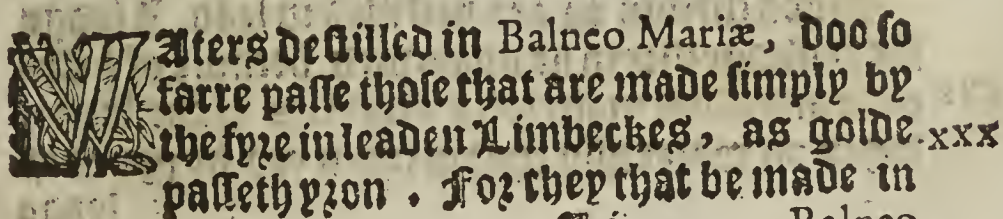 WAters destilled in Balneo Mariæ, doo so
farre passe those that are made simply by
the fyre in leaden Limbeckes, as golde xxx
passeth yron. For they that be made in
Balneo